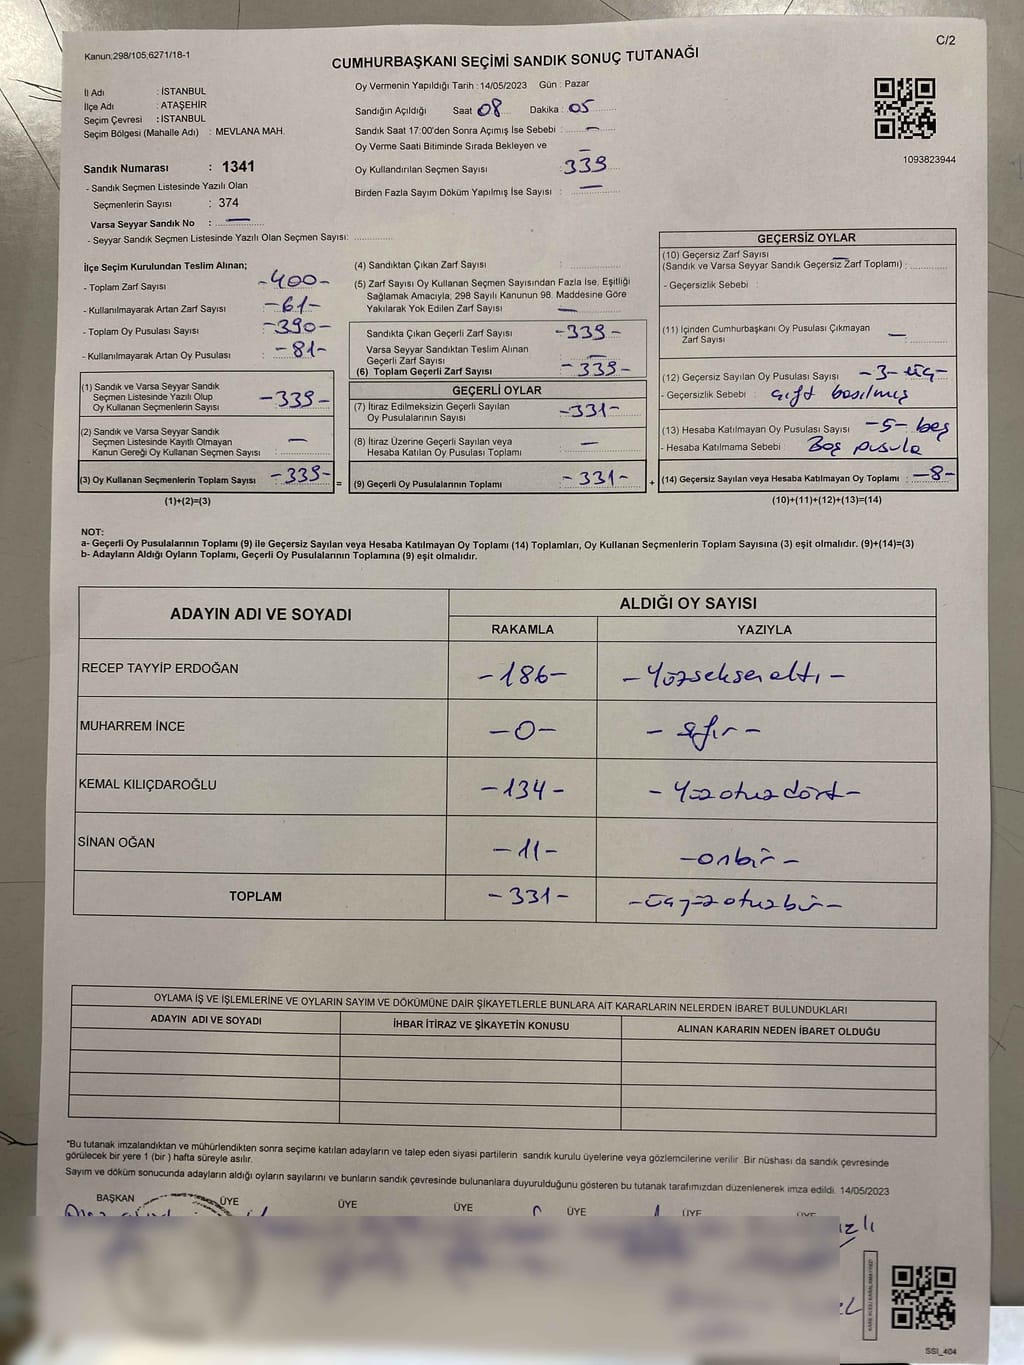 C/2
Kanun;298/105;6271/18-1
CUMHURBAŞKANI SEÇİMİ SANDIK SONUÇ TUTANAĞI
İl Adı : İSTANBUL
İlçe Adı : ATAŞEHİR
Seçim Çevresi : İSTANBUL
Seçim Bölgesi (Mahalle Adı) : MEVLANA MAH.
Sandık Numarası : 1341
- Sandık Seçmen Listesinde Yazılı Olan
Seçmenlerin Sayısı : 374
Varsa Seyyar Sandık No : —
- Seyyar Sandık Seçmen Listesinde Yazılı Olan Seçmen Sayısı: ..............
Oy Vermenin Yapıldığı Tarih : 14/05/2023 Gün : Pazar
Sandığın Açıldığı Saat 08 Dakika : 05
Sandık Saat 17:00'den Sonra Açımış İse Sebebi : —
Oy Verme Saati Bitiminde Sırada Bekleyen ve
Oy Kullandırılan Seçmen Sayısı : 339
Birden Fazla Sayım Döküm Yapılmış İse Sayısı : —
1093823944
İlçe Seçim Kurulundan Teslim Alınan;
- Toplam Zarf Sayısı : -400-
- Kullanılmayarak Artan Zarf Sayısı : -61-
- Toplam Oy Pusulası Sayısı : -390-
- Kullanılmayarak Artan Oy Pusulası : -81-
(1) Sandık ve Varsa Seyyar Sandık
Seçmen Listesinde Yazılı Olup
Oy Kullanan Seçmenlerin Sayısı : -339-
(2) Sandık ve Varsa Seyyar Sandık
Seçmen Listesinde Kayıtlı Olmayan
Kanun Gereği Oy Kullanan Seçmen Sayısı : —
(3) Oy Kullanan Seçmenlerin Toplam Sayısı : -339- =
(1)+(2)=(3)
(4) Sandıktan Çıkan Zarf Sayısı : ..............
(5) Zarf Sayısı Oy Kullanan Seçmen Sayısından Fazla İse, Eşitliği
Sağlamak Amacıyla; 298 Sayılı Kanunun 98. Maddesine Göre
Yakılarak Yok Edilen Zarf Sayısı : —
Sandıkta Çıkan Geçerli Zarf Sayısı : -339-
Varsa Seyyar Sandıktan Teslim Alınan
Geçerli Zarf Sayısı : —
(6) Toplam Geçerli Zarf Sayısı : -339-
GEÇERLİ OYLAR
(7) İtiraz Edilmeksizin Geçerli Sayılan
Oy Pusulalarının Sayısı : -331-
(8) İtiraz Üzerine Geçerli Sayılan veya
Hesaba Katılan Oy Pusulası Toplamı : —
(9) Geçerli Oy Pusulalarının Toplamı : -331- +
GEÇERSİZ OYLAR
(10) Geçersiz Zarf Sayısı
(Sandık ve Varsa Seyyar Sandık Geçersiz Zarf Toplamı) : —
- Geçersizlik Sebebi :
(11) İçinden Cumhurbaşkanı Oy Pusulası Çıkmayan
Zarf Sayısı : —
(12) Geçersiz Sayılan Oy Pusulası Sayısı -3- üç-
- Geçersizlik Sebebi : çift basılmış
(13) Hesaba Katılmayan Oy Pusulası Sayısı : -5- beş
- Hesaba Katılmama Sebebi : Boş pusula
(14) Geçersiz Sayılan veya Hesaba Katılmayan Oy Toplamı : -8-
(10)+(11)+(12)+(13)=(14)
NOT:
a- Geçerli Oy Pusulalarının Toplamı (9) ile Geçersiz Sayılan veya Hesaba Katılmayan Oy Toplamı (14) Toplamları, Oy Kullanan Seçmenlerin Toplam Sayısına (3) eşit olmalıdır. (9)+(14)=(3)
b- Adayların Aldığı Oyların Toplamı, Geçerli Oy Pusulalarının Toplamına (9) eşit olmalıdır.
ADAYIN ADI VE SOYADI ALDIĞI OY SAYISI
RAKAMLA YAZIYLA
RECEP TAYYİP ERDOĞAN -186- -Yüzseksenaltı-
MUHARREM İNCE -0- -sıfır-
KEMAL KILIÇDAROĞLU -134- -Yüzotuzdört-
SİNAN OĞAN -11- -onbir-
TOPLAM -331- -üçyüzotuzbir-
OYLAMA İŞ VE İŞLEMLERİNE VE OYLARIN SAYIM VE DÖKÜMÜNE DAİR ŞİKAYETLERLE BUNLARA AİT KARARLARIN NELERDEN İBARET BULUNDUKLARI
ADAYIN ADI VE SOYADI İHBAR İTİRAZ VE ŞİKAYETİN KONUSU ALINAN KARARIN NEDEN İBARET OLDUĞU
*Bu tutanak imzalandıktan ve mühürlendikten sonra seçime katılan adayların ve talep eden siyasi partilerin sandık kurulu üyelerine veya gözlemcilerine verilir. Bir nüshası da sandık çevresinde
görülecek bir yere 1 (bir ) hafta süreyle asılır.
Sayım ve döküm sonucunda adayların aldığı oyların sayılarını ve bunların sandık çevresinde bulunanlara duyurulduğunu gösteren bu tutanak tarafımızdan düzenlenerek imza edildi. 14/05/2023
BAŞKAN ÜYE ÜYE ÜYE ÜYE ÜYE ÜYE
SSI_404